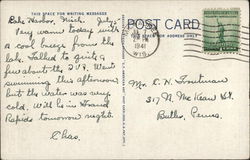 THIS SPACE FOR WRITING MESSAGES
POST CARD
Lake Harbor, Mich. July
Very warm today with
a cool breeze from the
lake. Talked to quite a
few about the
swimming this afternoon
but the water was very
cold. Will be in Grand
Rapids tomorrow night.
Chas.
1941
WIS
SPACE FOR ADDRESS ONLY
Mr. C. H. Troutman
317 N. McKean St.
Butler, Penna.